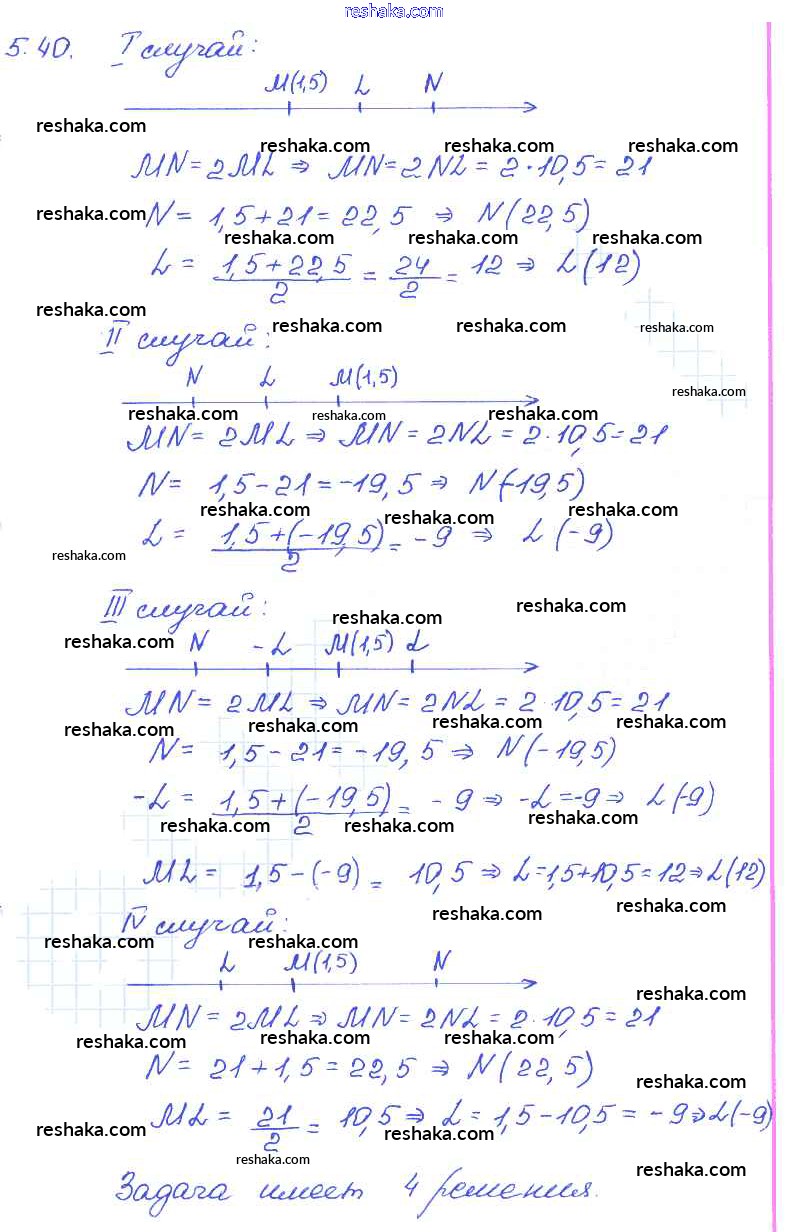 reshaka.com
5.40. I случай:
M(1,5) L N
reshaka.com reshaka.com reshaka.com reshaka.com
MN = 2ML ⇒ MN = 2NL = 2 · 10,5 = 21
reshaka.com N = 1,5 + 21 = 22,5 ⇒ N(22,5)
reshaka.com reshaka.com reshaka.com
L = (1,5 + 22,5)/2 = 24/2 = 12 ⇒ L(12)
reshaka.com reshaka.com reshaka.com reshaka.com
II случай:
N L M(1,5)
reshaka.com
reshaka.com reshaka.com reshaka.com
MN = 2ML ⇒ MN = 2NL = 2 · 10,5 = 21
N = 1,5 - 21 = -19,5 ⇒ N(-19,5)
reshaka.com reshaka.com reshaka.com
L = (1,5 + (-19,5))/2 = -9 ⇒ L(-9)
reshaka.com
III случай:
reshaka.com reshaka.com reshaka.com
N -L M(1,5) L
MN = 2ML ⇒ MN = 2NL = 2 · 10,5 = 21
reshaka.com reshaka.com reshaka.com reshaka.com
N = 1,5 - 21 = -19,5 ⇒ N(-19,5)
-L = (1,5 + (-19,5))/2 = -9 ⇒ -L = -9 ⇒ L(-9)
reshaka.com reshaka.com reshaka.com
ML = 1,5 - (-9) = 10,5 ⇒ L = 1,5 + 10,5 = 12 ⇒ L(12)
reshaka.com reshaka.com
IV случай:
reshaka.com reshaka.com
L M(1,5) N
reshaka.com
MN = 2ML ⇒ MN = 2NL = 2 · 10,5 = 21
reshaka.com reshaka.com reshaka.com
N = 21 + 1,5 = 22,5 ⇒ N(22,5)
reshaka.com
ML = 21/2 = 10,5 ⇒ L = 1,5 - 10,5 = -9 ⇒ L(-9)
reshaka.com reshaka.com
reshaka.com reshaka.com
Задача имеет 4 решения.